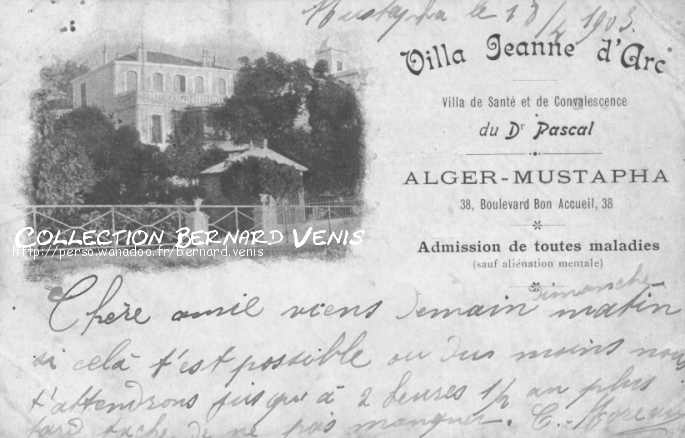 Mustapha le 18/4 1903.
Villa Jeanne d'Arc
Villa de Santé et de Convalescence
du Dr Pascal
ALGER-MUSTAPHA
38, Boulevard Bon Accueil, 38
Admission de toutes maladies
(sauf aliénation mentale)
COLLECTION BERNARD VENIS
http://perso.wanadoo.fr/bernard.venis
dimanche
Chère amie viens demain matin
si celà t'est possible ou du moins nous
t'attendrons jusque à 2 heures 1/2 au plus
tard tache de ne pas manquer. C. Moreau